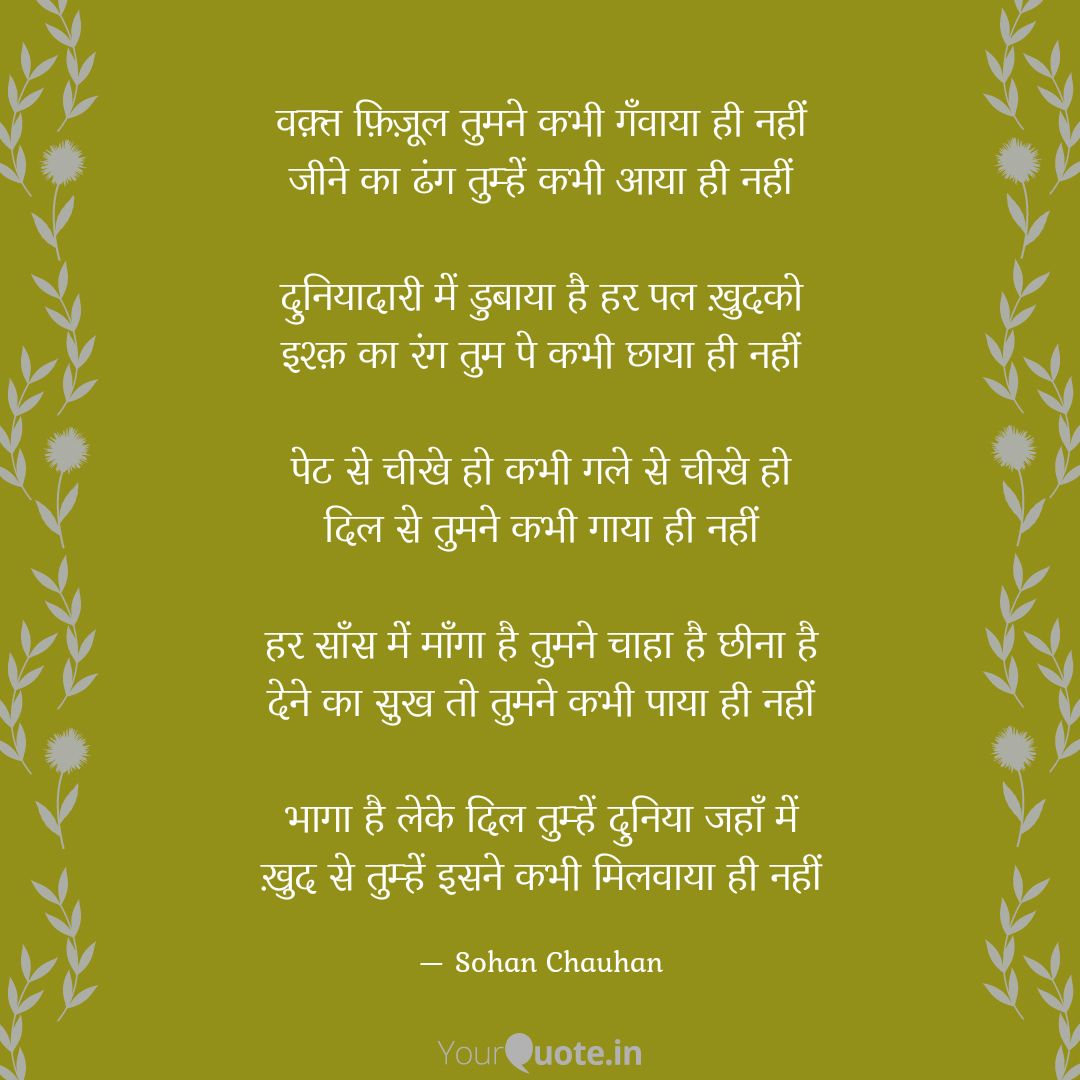 वक़्त फ़िज़ूल तुमने कभी गँवाया ही नहीं
जीने का ढंग तुम्हें कभी आया ही नहीं
दुनियादारी में डुबाया है हर पल ख़ुदको
इश्क़ का रंग तुम पे कभी छाया ही नहीं
पेट से चीखे हो कभी गले से चीखे हो
दिल से तुमने कभी गाया ही नहीं
हर साँस में माँगा है तुमने चाहा है छीना है
देने का सुख तो तुमने कभी पाया ही नहीं
भागा है लेके दिल तुम्हें दुनिया जहाँ में
ख़ुद से तुम्हें इसने कभी मिलवाया ही नहीं
— Sohan Chauhan
YourQuote.in